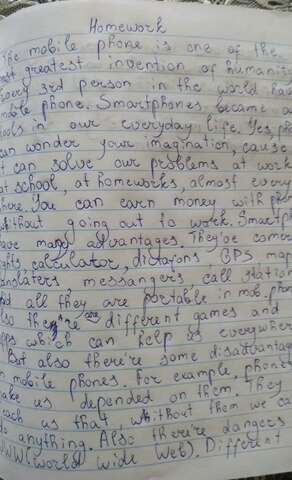 Homework
The mobile phone is one of the
greatest invention of humanity
every 3rd person in the world hav
mobile phone. Smartphones became a
tools in our everyday life. Yes, ph
can wonder your imagination, cause
it can solve our problems at work
at school, at homeworks, almost every
where. You can earn money with phon
whithout going out to work. Smartph
have many advantages. They've camer
lights, calculator, GPS map
translaters, messangers call station
and all they are portable in mob. phon
also there're are different games and
apps which can help us everywher
But also there're some disadvantag
in mobile phones. For example, phone
make us depended on them. They
teach us that, whithout them we ca
do anything. Also there're dangers
WWW(world wide Web). Different